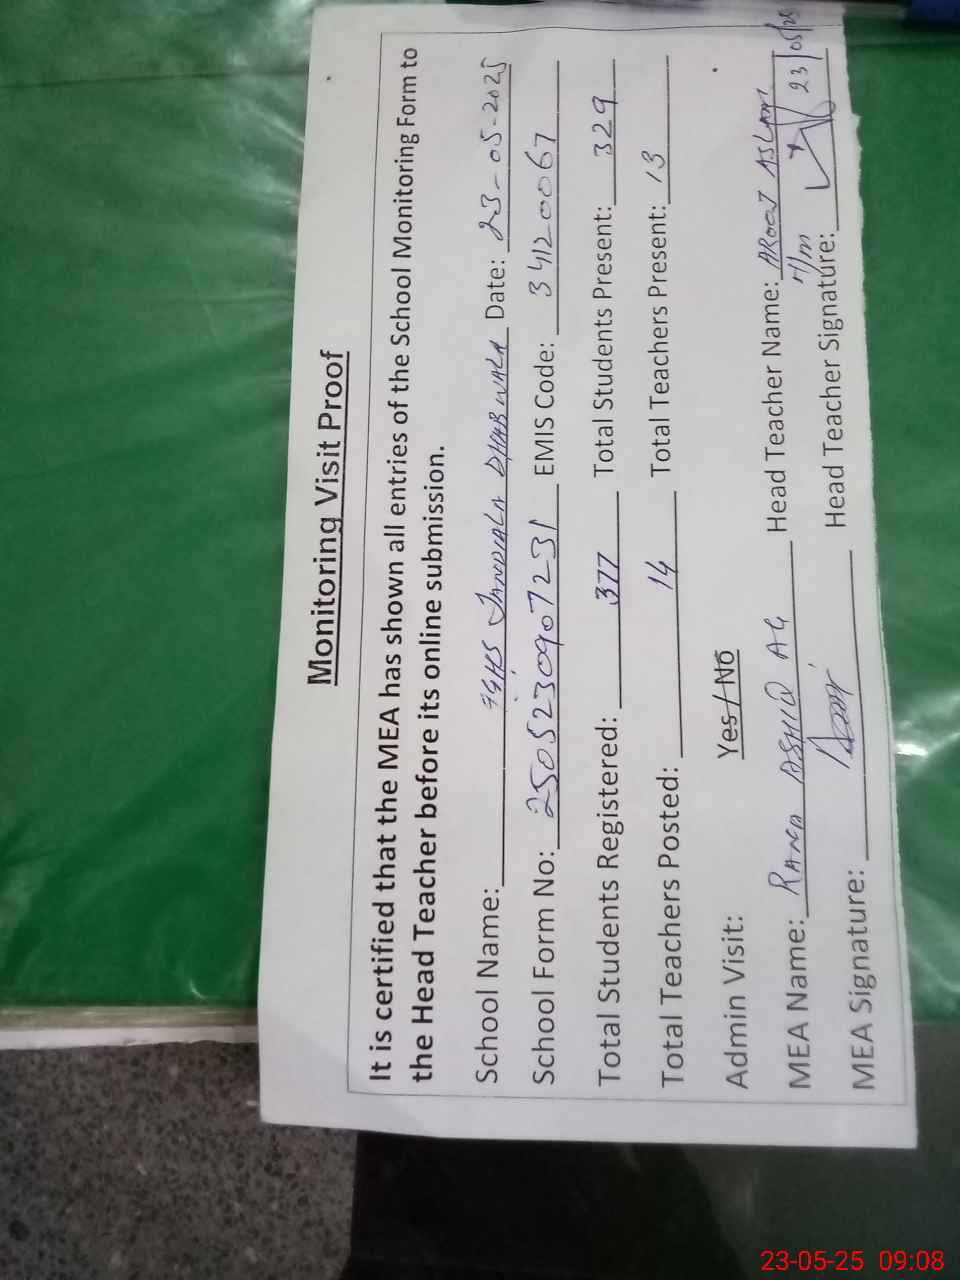 Monitoring Visit Proof
It is certified that the MEA has shown all entries of the School Monitoring Form to
the Head Teacher before its online submission.
School Name: GGHS JANDIALA DHAB WALA Date: 23-05-2025
School Form No: 2505230907231 EMIS Code: 34120067
Total Students Registered: 377 Total Students Present: 329
Total Teachers Posted: 14 Total Teachers Present: 13
Admin Visit: Yes/No
MEA Name: RANA ASHIQ ALI Head Teacher Name: AROOJ ASLAM
MEA Signature: Head Teacher Signature: 23/05/25
23-05-25 09:08